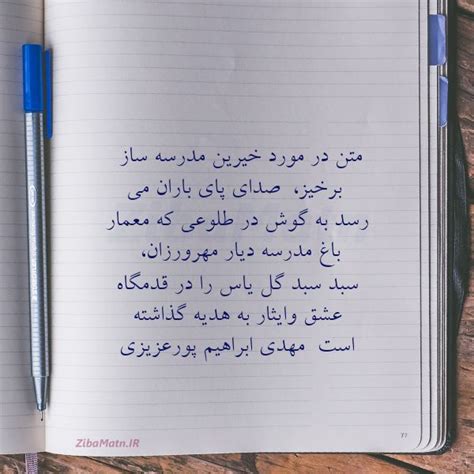 متن در مورد خیرین مدرسه ساز
برخیز،  صدای پای باران می
رسد به گوش در طلوعی که معمار
باغ مدرسه دیار مهرورزان،
سبد سبد گل یاس را در قدمگاه
عشق وایثار به هدیه گذاشته
است  مهدی ابراهیم پورعزیزی
ZibaMatn.IR